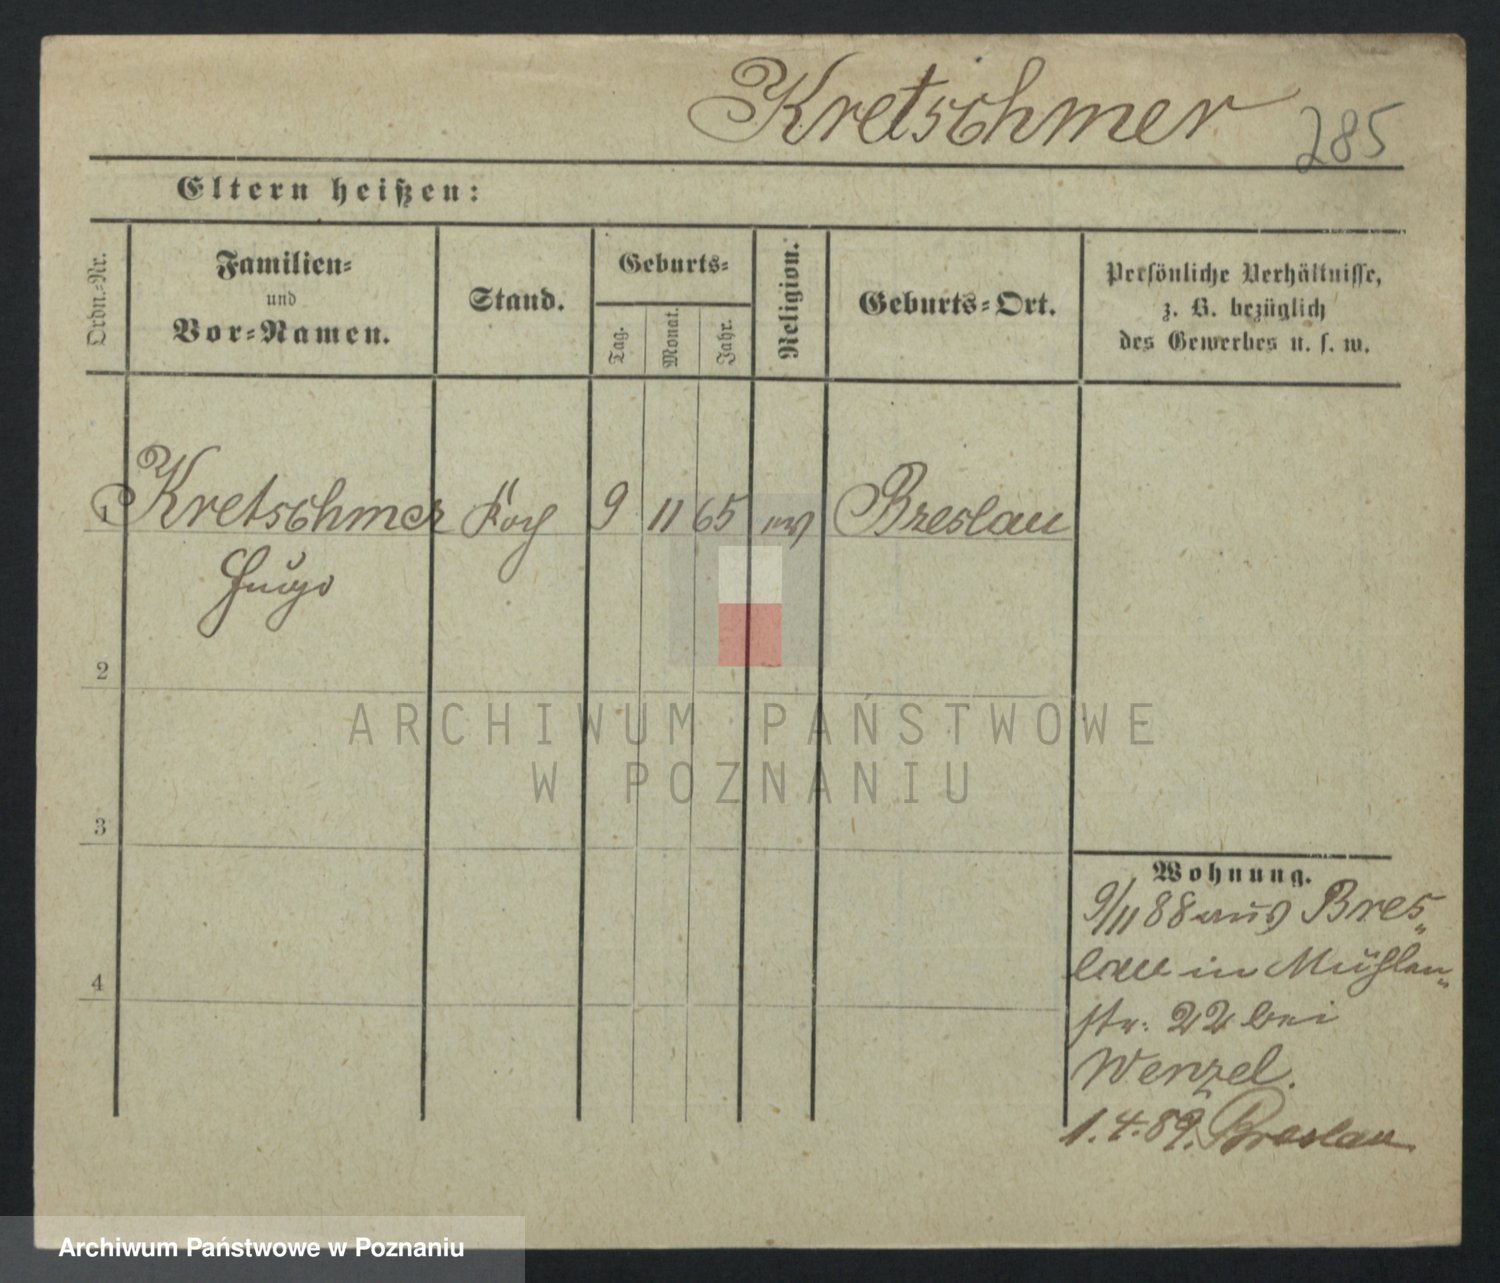 Kretschmer 285
Eltern heißen:
Ordn.-Nr.
Familien-
und
Vor-Namen.
Stand.
Geburts-
Tag.
Monat.
Jahr.
Religion.
Geburts-Ort.
Persönliche Verhältnisse,
z. B. bezüglich
des Gewerbes u. s. w.
1 Kretschmer Koch 9 11 65 ev Breslau
Hugo
2
3
4
Wohnung.
9/11 88 aus Bres„
lau in Mühlen„
str. 22 bei
Wenzel.
1.4.89. Breslau
ARCHIWUM PAŃSTWOWE
W POZNANIU
Archiwum Państwowe w Poznaniu